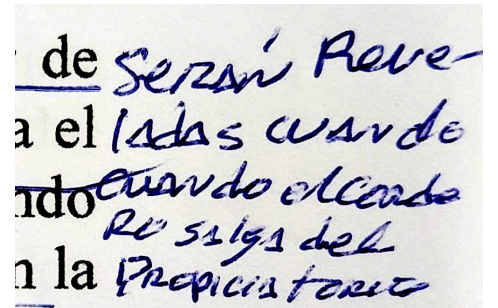 de Serán Reve-
a el ladas cuando
ndo cuando el Corde
Ro salga del
n la Propiciatorio